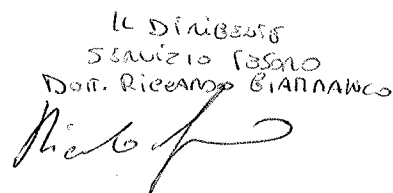 IL DIRIGENTE
SERVIZIO TESORO
DOTT. RICCARDO GIAMMANCO